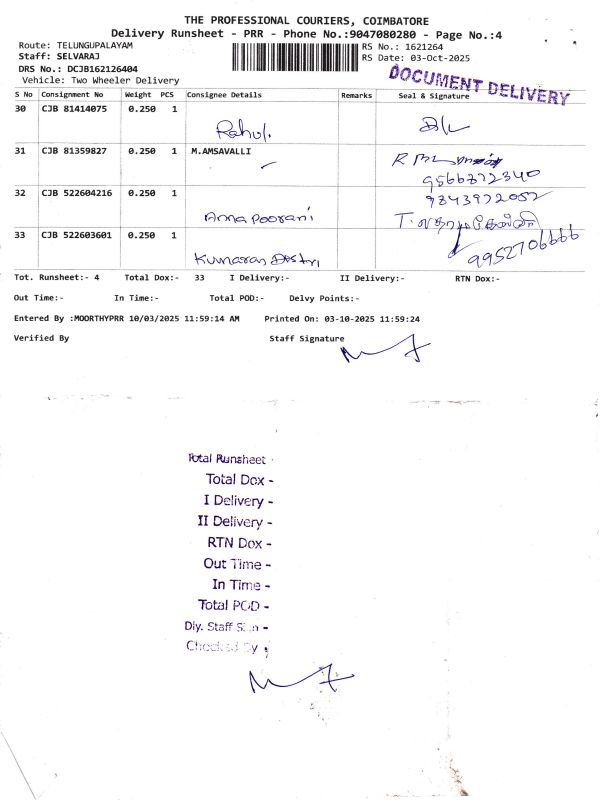 THE PROFESSIONAL COURIERS, COIMBATORE
Delivery Runsheet - PRR - Phone No.:9047080280 - Page No.:4
Route: TELUNGUPALAYAM
RS No.: 1621264
Staff: SELVARAJ
RS Date: 03-Oct-2025
DRS No.: DCJB162126404
Vehicle: Two Wheeler Delivery
DOCUMENT DELIVERY
S No Consignment No Weight PCS Consignee Details Remarks Seal & Signature
30 CJB 81414075 0.250 1
Rahul.
31 CJB 81359827 0.250 1 M.AMSAVALLI
9566872340
32 CJB 522604216 0.250 1 9843972052
Anna Poorani
33 CJB 522603601 0.250 1
9952706666
Kumaran
Tot. Runsheet:- 4 Total Dox:- 33 I Delivery:- II Delivery:- RTN Dox:-
Out Time:- In Time:- Total POD:- Delvy Points:-
Entered By :MOORTHYPRR 10/03/2025 11:59:14 AM Printed On: 03-10-2025 11:59:24
Verified By Staff Signature
Total Runsheet -
Total Dox -
I Delivery -
II Delivery -
RTN Dox -
Out Time -
In Time -
Total POD -
Dly. Staff Sign -
Checked By -